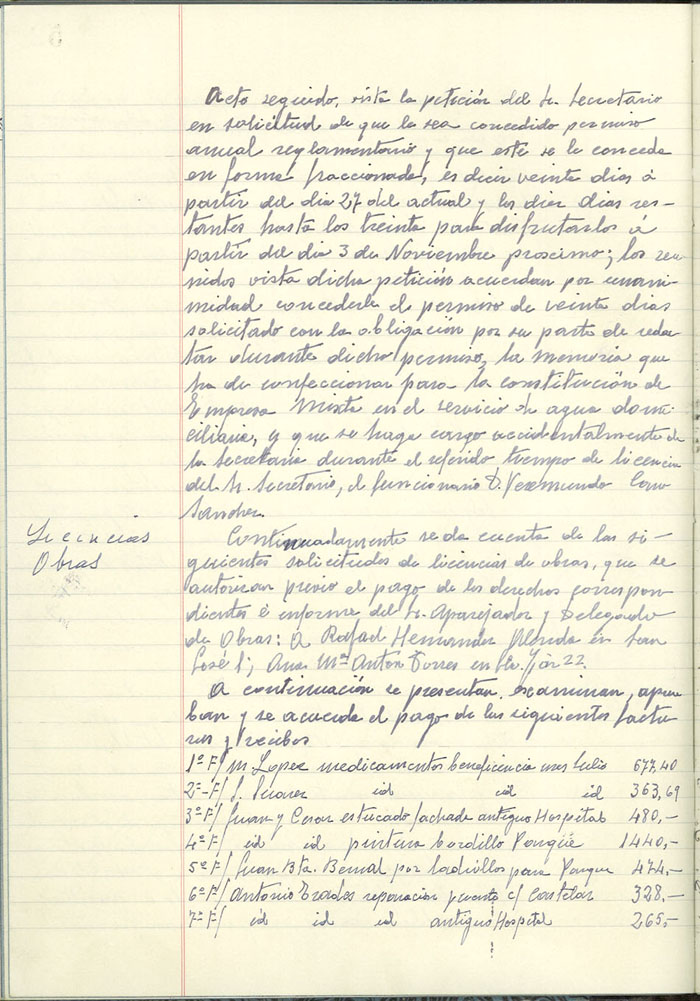 Acto seguido, vista la petición del Sr. Secretario
en solicitud de que le sea concedido permiso
anual reglamentario y que este se le conceda
en forma fraccionada, es decir veinte dias á
partir del dia 27 del actual y los diez dias res-
tantes hasta los treinta para disfrutarlos á
partir del dia 3 de Noviembre proximo; los reu-
nidos vista dicha petición acuerdan por unani-
midad concederle el permiso de veinte dias
solicitado con la obligación por su parte de redac-
tar durante dicho permiso, la memoria que
ha de confeccionar para la constitución de
Empresa Mixta en el servicio de agua domi-
ciliaria, y que se haga cargo accidentalmente de
la Secretaria durante el referido tiempo de licencia
del Sr. Secretario, el funcionario D. Veremundo Cano
Sanchez.
Licencias
Obras
Continuadamente se da cuenta de las si-
guientes solicitudes de licencias de obras, que se
autorizan previo el pago de los derechos correspon-
dientes é informe del Sr. Aparejador y Delegado
de Obras: A Rafael Hernandez en San
José 1; Ana Mª Anton Torres en 22.
A continuación se presentan, examinan, aprue-
ban y se acuerda el pago de las siguientes factu-
ras y recibos
1ª F/ M. Lopez medicamentos beneficencia mes Julio 677,40
2ª-F/ id id id 363,69
3ª F/ Juan y Cesar estucado fachada antiguo Hospital 480,-
4ª F/ id id pintura bordillo Parque 1440,-
5ª F/ Juan Bta. Bernal por ladrillos para Parque 474,-
6ª F/ Antonio reparación puente c/ Castelar 328,-
7ª F/ id id id antiguo Hospital 265,-